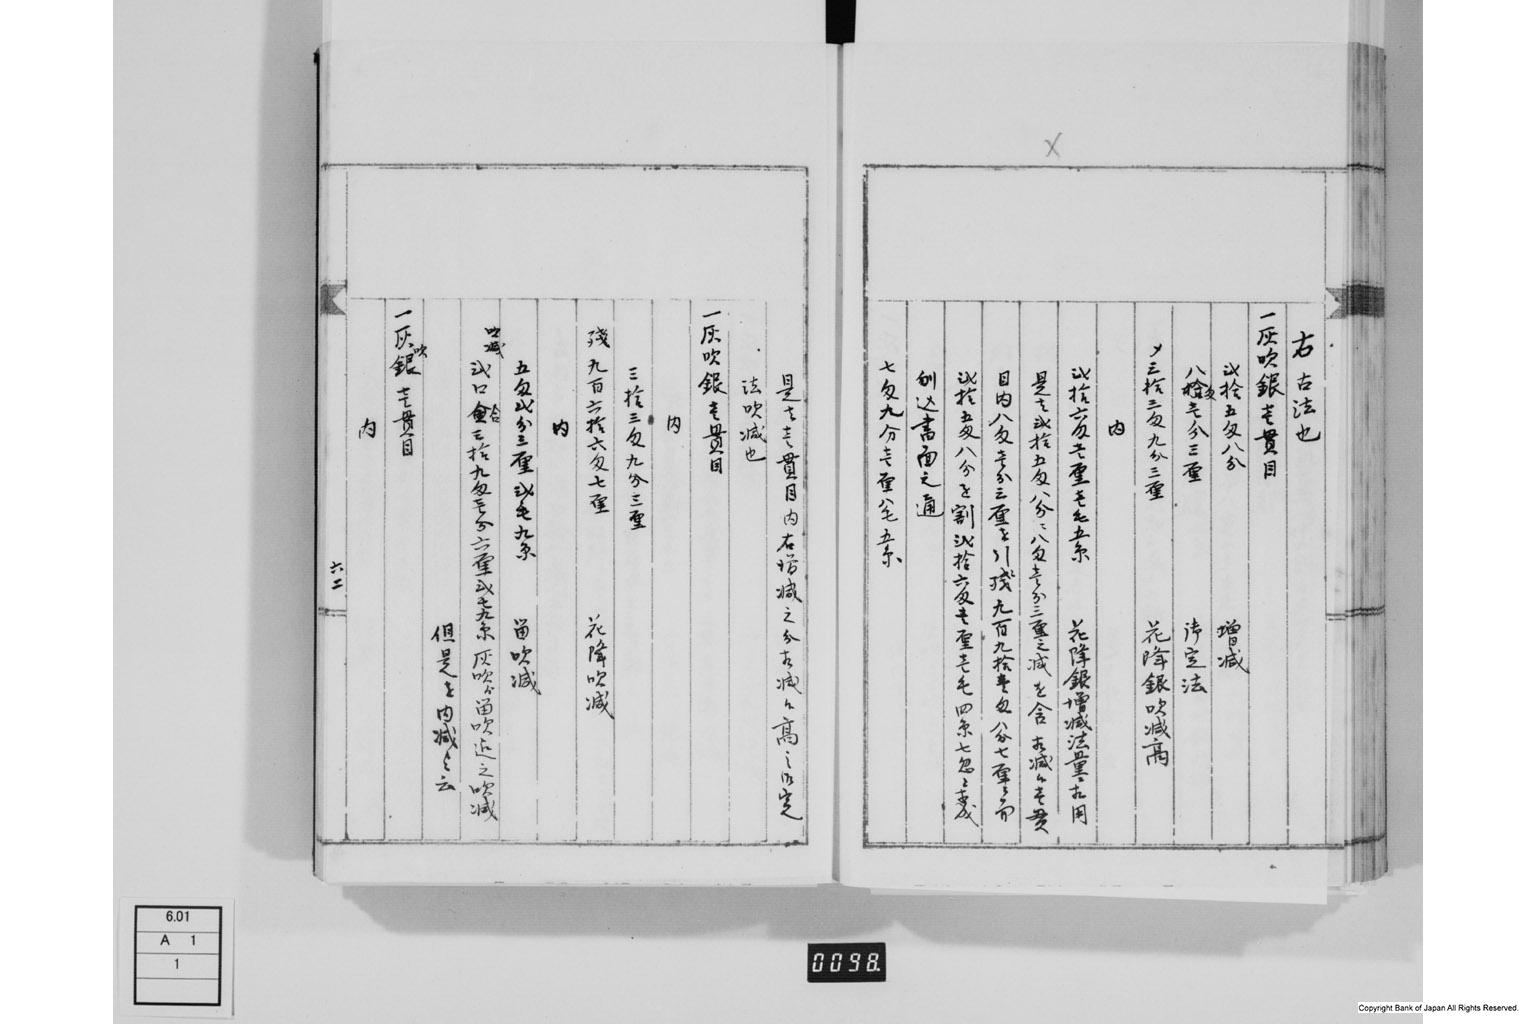 右古法也
一灰吹銀壱貫目
弐拾五匁八分　増減
八匁壱分三厘　御定法
〆三拾三匁九分三厘　花降銀吹減高
内
弐拾六匁壱厘壱毛五糸　花降銀増減法量ニ相用
是ハ弐拾五匁八分ニ八匁壱分三厘之減を含相減候壱貫
目内八匁壱分三厘を引残九百九拾壱匁八分七厘ニ而
弐拾五匁八分を割弐拾六匁壱厘壱毛四糸七忽ニ成
則此書面之通
七匁九分壱厘八毛五糸
是ハ壱貫目内右増減之分相減候高之御定
法吹減也
一灰吹銀壱貫目
内
三拾三匁九分三厘
残九百六拾六匁七厘　花降吹減
内
五匁弐分三厘弐毛九糸　留吹減
吹減弐口合三拾九匁壱分六厘弐毛九糸灰吹ゟ留吹迄之吹減
但是を内減と云
一灰吹銀壱貫目
内
六二
6.01
A 1
1
0098
Copyright Bank of Japan All Rights Reserved.